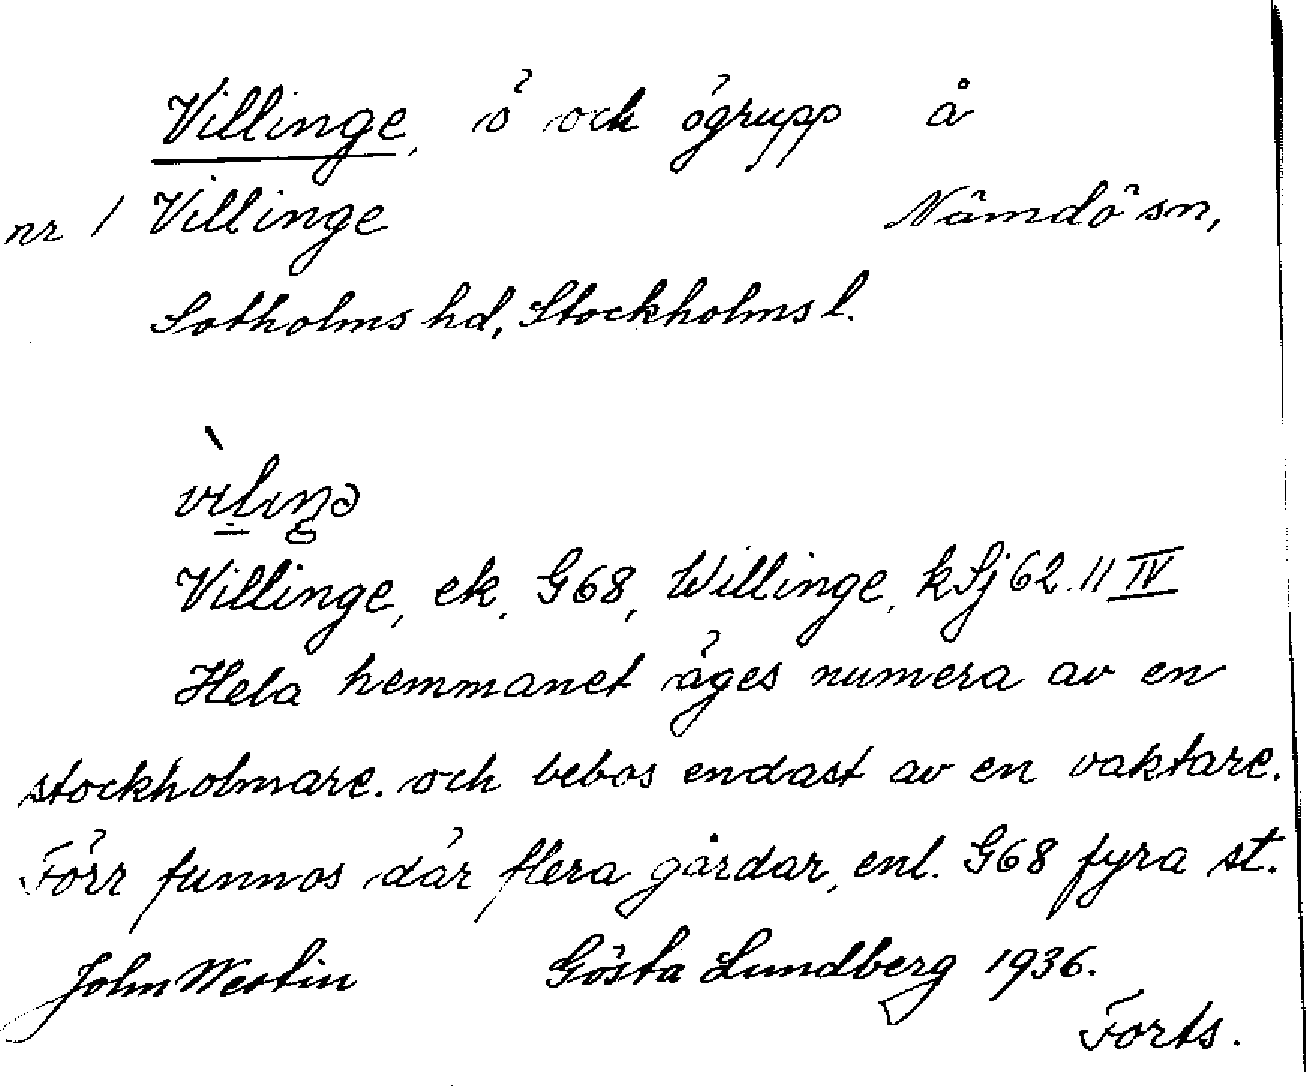 Villinge, ö och ögrupp å
nr 1 Villinge Nämdö sn,
Sotholms hd, Stockholms l.
vìliŋə
Villinge, ek, G68, Willinge, k Sj 62.11 IV
Hela hemmanet äges numera av en
stockholmare. och bebos endast av en vaktare.
Förr funnos där flera gårdar, enl. G68 fyra st.
John Westin Gösta Lundberg 1936.
Forts.